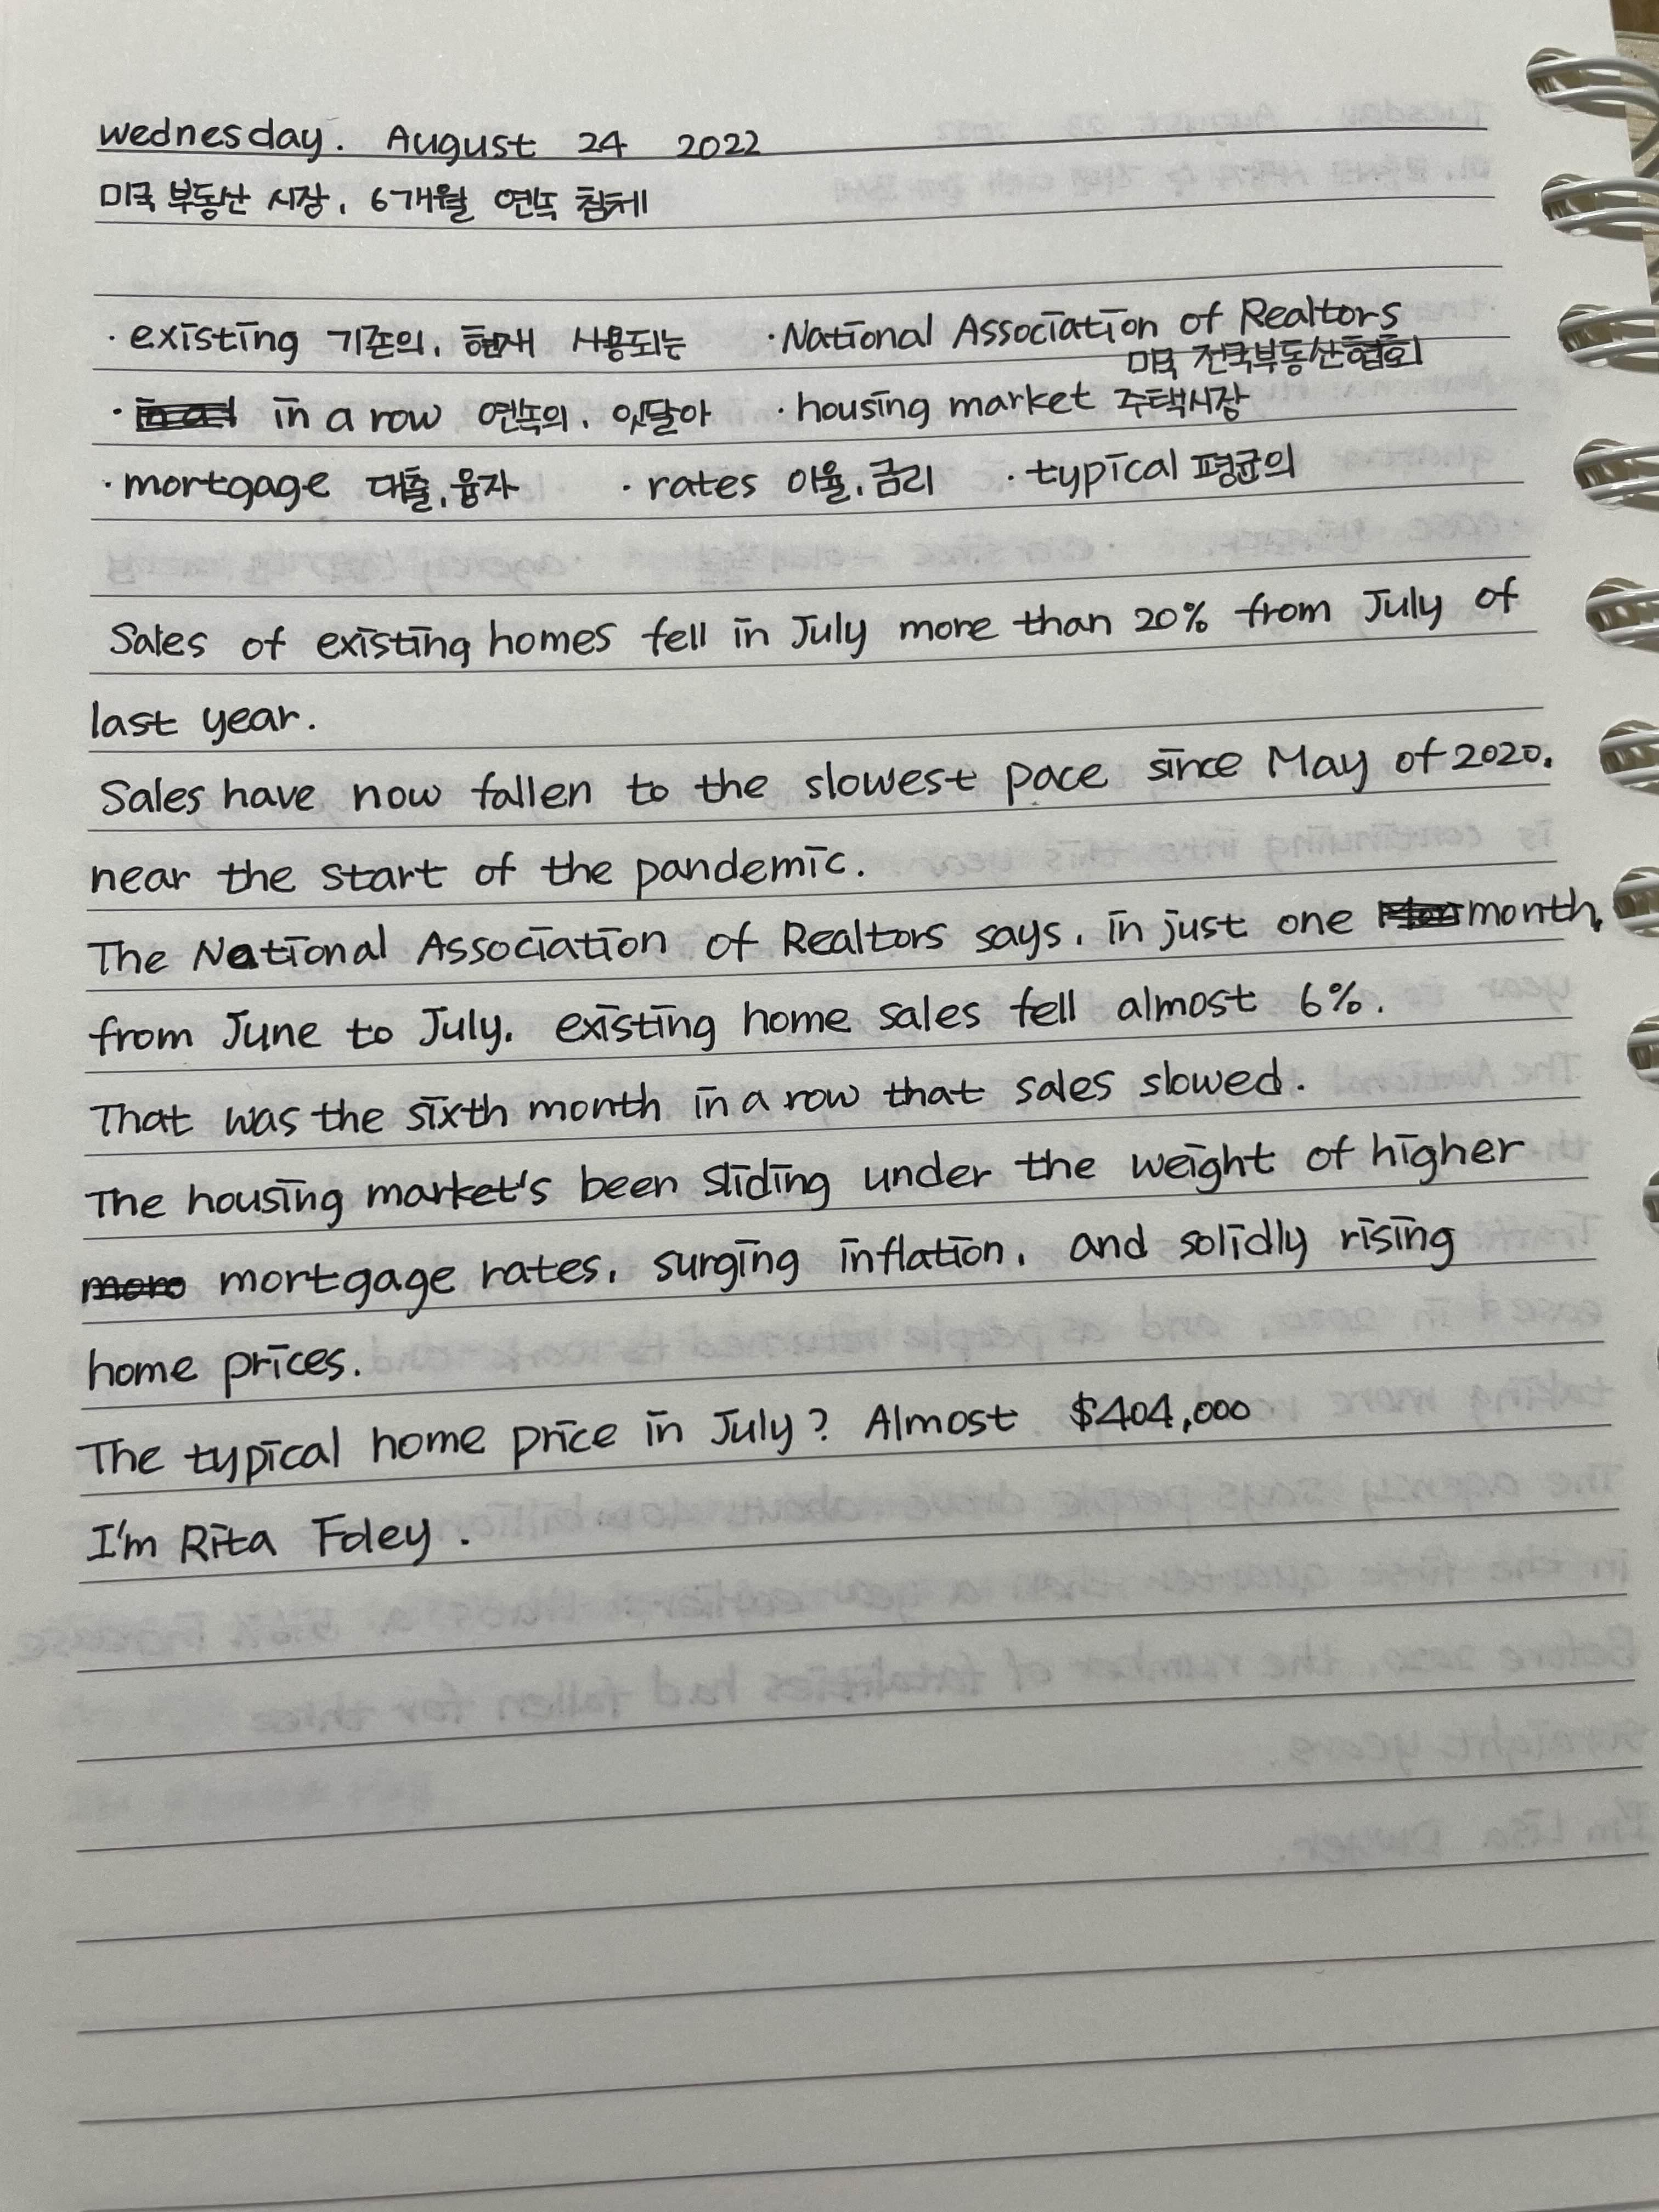 wednesday. August 24 2022
미국 부동산 시장, 6개월 연속 침체
· existing 기존의, 현재 사용되는 · National Association of Realtors
미국 전국부동산협회
· in a row 연속의, 잇달아 · housing market 주택시장
· mortgage 대출, 융자 · rates 이율, 금리 · typical 평균의
Sales of existing homes fell in July more than 20% from July of
last year.
Sales have now fallen to the slowest pace since May of 2020,
near the start of the pandemic.
The National Association of Realtors says, in just one month,
from June to July, existing home sales fell almost 6%.
That was the sixth month in a row that sales slowed.
The housing market's been sliding under the weight of higher
mortgage rates, surging inflation, and solidly rising
home prices.
The typical home price in July? Almost $404,000
I'm Rita Foley.